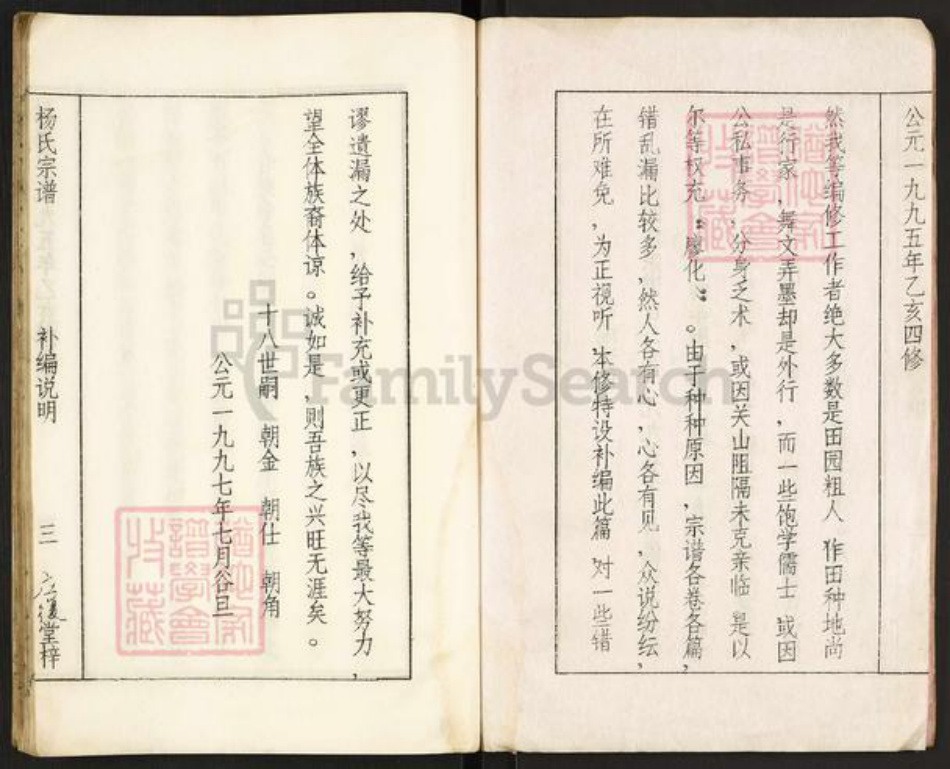 公元一九九五年乙亥四修
然我等编修工作者绝大多数是田园粗人 作田种地尚
是行家,舞文弄墨却是外行,而一些饱学儒士 或因
公私事务,分身乏术,或因关山阻隔未克亲临 是以
尔等权充:廖化:。由于种种原因,宗谱各卷各篇,
错乱漏比较多,然人各有心,心各有见,众说纷纭,
在所难免,为正视听,本修特设补编此篇,对一些错
谬遗漏之处,给予补充或更正,以尽我等最大努力,
望全体族裔体谅。诚如是,则吾族之兴旺无涯矣。
十八世嗣 朝金 朝仕 朝角
公元一九九七年七月谷旦
杨氏宗谱 补编说明 三 堂梓
FamilySearch